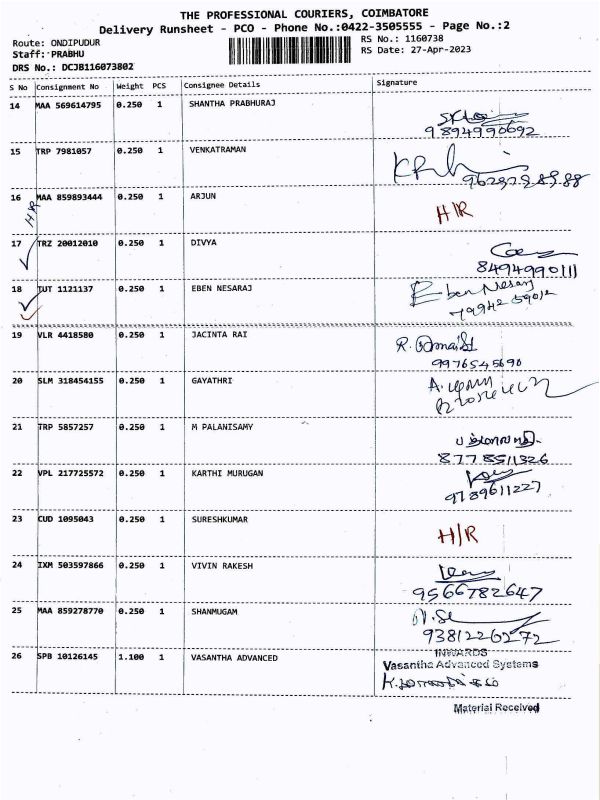 THE PROFESSIONAL COURIERS, COIMBATORE
Delivery Runsheet - PCO - Phone No.:0422-3505555 - Page No.:2
Route: ONDIPUDUR
RS No.: 1160738
Staff: PRABHU
RS Date: 27-Apr-2023
DRS No.: DCJB116073802
S No Consignment No Weight PCS Consignee Details Signature
14 MAA 569614795 0.250 1 SHANTHA PRABHURAJ
9894990692
15 TRP 7981057 0.250 1 VENKATRAMAN
16 MAA 859893444 0.250 1 ARJUN H/R
H/R
17 TRZ 20012010 0.250 1 DIVYA
8494990111
18 TUT 1121137 0.250 1 EBEN NESARAJ Eben Nesaraj
19 VLR 4418580 0.250 1 JACINTA RAI
9976545690
20 SLM 318454155 0.250 1 GAYATHRI
21 TRP 5857257 0.250 1 M PALANISAMY
8778511326
22 VPL 217725572 0.250 1 KARTHI MURUGAN
9789611227
23 CUD 1095043 0.250 1 SURESHKUMAR H/R
24 IXM 503597866 0.250 1 VIVIN RAKESH
9566782647
25 MAA 859278770 0.250 1 SHANMUGAM
9381226272
26 SPB 10126145 1.100 1 VASANTHA ADVANCED
INWARDS
Vasantha Advanced Systems
Material Received